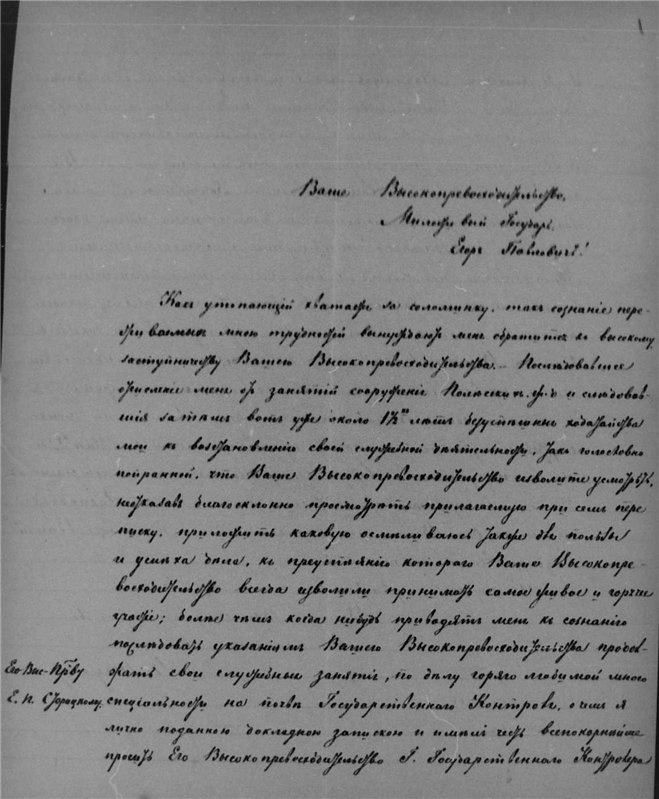 Ваше Высокопревосходительство,
Милостивый Государь
Егоръ Павловичъ!
Какъ утопающій хватаетъ за соломинку, такъ сознаніе пере-
живаемыхъ мною трудностей вынуждаютъ меня обратиться къ высокому
заступничеству Вашего Высокопревосходительства. Послѣдовавшее
отчисленіе меня отъ занятій сооруженія Полѣсскихъ ж. д. и слѣдовав-
шія затѣмъ вотъ уже около 1½ лѣтъ безуспѣшныя ходатайства
мои къ возстановленію своей служебной дѣятельности, такъ голословно
попранной, что Ваше Высокопревосходительство изволите усмотрѣть,
неотказавъ благосклонно просмотрѣть прилагаемую при семъ пере
писку, приложить каковую осмѣливаюсь также для пользы
и успѣха дѣла, къ которого Ваше Высокопре-
восходительство всегда изволили принимать самое живое и горячее
участіе; болѣе чѣмъ когда нибудь приводятъ меня къ сознанію
послѣдовать указаніямъ Вашего Высокопревосходительства продол-
жать свои служебныя занятія, по дѣлу горяго любимой мною
Его Выс-Пр̅ву
Е. П. спеціальности на почвѣ Государственнаго Контроля, о чемъ я
лично поданною докладною запискою и имѣлъ честь всепокорнѣйше
просить Его Высокопревосходительство Г. Государственнаго Контролера